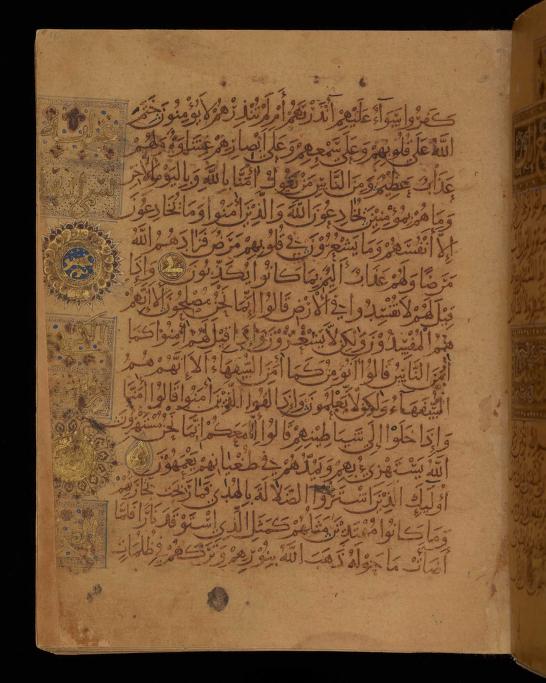 كفروا سواء عليهم أنذرتهم أم لم تنذرهم لا يؤمنون ختم
الله على قلوبهم وعلى سمعهم وعلى أبصارهم غشاوة ولهم
عذاب عظيم ومن الناس من يقول آمنا بالله وباليوم الآخر
وما هم بمؤمنين يخادعون الله والذين آمنوا وما يخادعون
إلا أنفسهم وما يشعرون في قلوبهم مرض فزادهم الله
مرضا ولهم عذاب أليم بما كانوا يكذبون وإذا
قيل لهم لا تفسدوا في الأرض قالوا إنما نحن مصلحون ألا إنهم
هم المفسدون ولكن لا يشعرون وإذا قيل لهم آمنوا كما
آمن الناس قالوا أنؤمن كما آمن السفهاء ألا إنهم هم
السفهاء ولكن لا يعلمون وإذا لقوا الذين آمنوا قالوا آمنا
وإذا خلوا إلى شياطينهم قالوا إنا معكم إنما نحن مستهزون
الله يستهزئ بهم ويمدهم في طغيانهم يعمهون
أولئك الذين اشتروا الضلالة بالهدى فما ربحت تجارتهم
وما كانوا مهتدين مثلهم كمثل الذي استوقد نارا فلما
أضاءت ما حوله ذهب الله بنورهم وتركهم في ظلمات